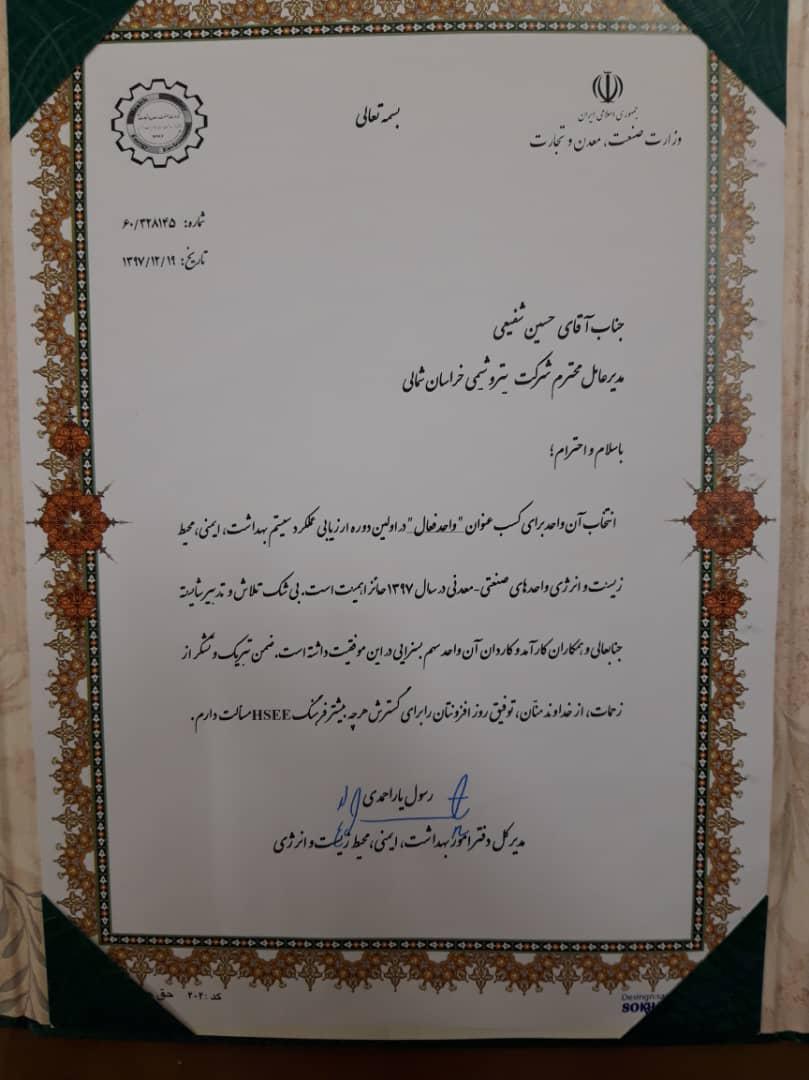 بسمه تعالی
جمهوری اسلامی ایران
وزارت صنعت، معدن و تجارت
شماره: ۶۰/۳۲۸۱۴۵
تاریخ: ۱۳۹۷/۱۲/۱۹
جناب آقای حسین شفیعی
مدیرعامل محترم شرکت پتروشیمی خراسان شمالی
باسلام و احترام؛
انتخاب آن واحد برای کسب عنوان "واحد فعال" در اولین دوره ارزیابی عملکرد سیستم بهداشت، ایمنی، محیط
زیست و انرژی واحدهای صنعتی-معدنی در سال ۱۳۹۷ حائز اهمیت است. بی شک تلاش و تدبیر شایسته
جنابعالی و همکاران کارآمد و کاردان آن واحد سهم بسزایی در این موفقیت داشته است. ضمن تبریک و تشکر از
زحمات، از خداوند منّان، توفیق روز افزونتان را برای گسترش هرچه بیشتر فرهنگ HSEE مسألت دارم.
رسول یاراحمدی
مدیرکل دفتر امور بهداشت، ایمنی، محیط زیست و انرژی
کد: ۲۰۲ حق